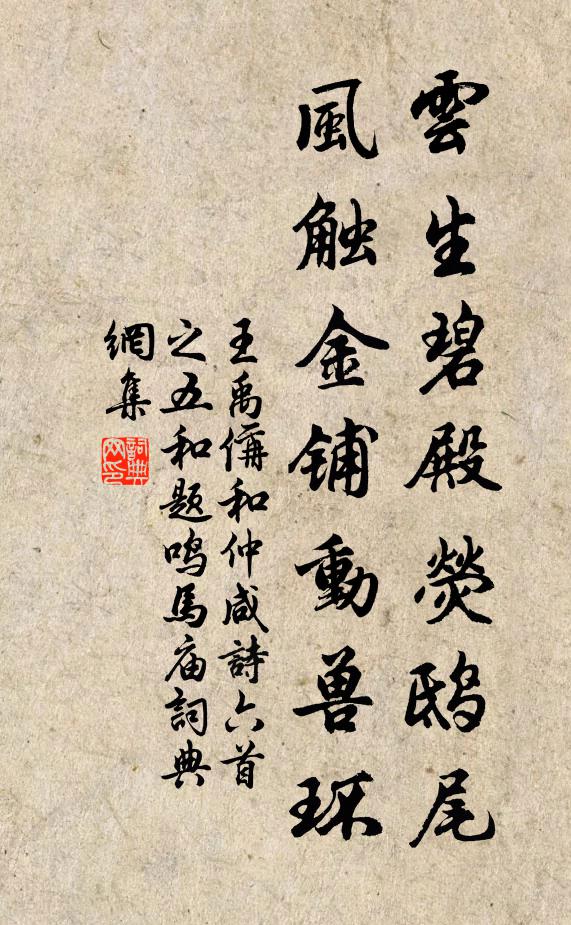 雲生碧殿熒鴟尾
風触金铺動兽环
王禹偁和仲咸詩六首
之五和题鸣馬庙詞典
網集
詞典
网印